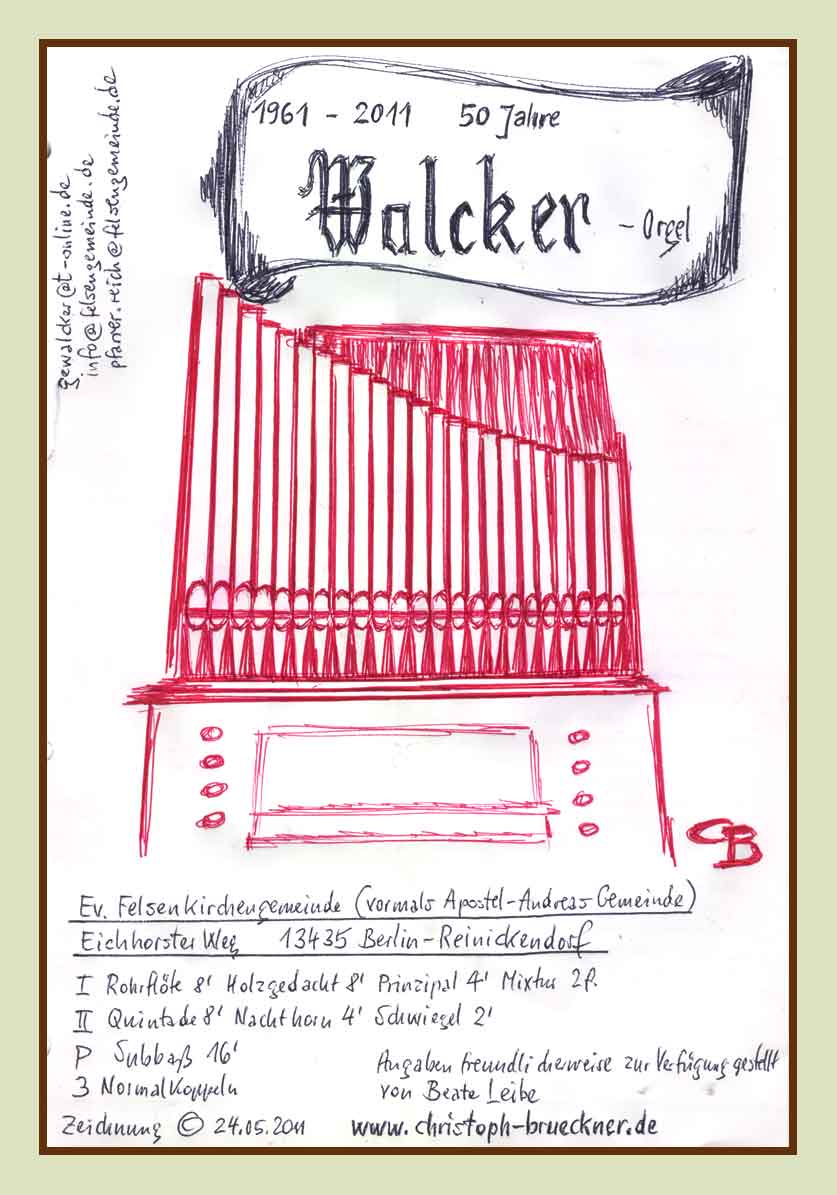 1961 - 2011 50 Jahre
Walcker - Orgel
gewalcker@t-online.de
info@felsengemeinde.de
pfarrer.reich@felsengemeinde.de
CB
Ev. Felsenkirchengemeinde (vormals Apostel-Andreas Gemeinde)
Eichhorster Weg 13435 Berlin-Reinickendorf
I Rohrflöte 8' Holzgedackt 8' Prinzipal 4' Mixtur 2f.
II Quintade 8' Nachthorn 4' Schwiegel 2'
P Subbaß 16'
3 Normalkoppeln
Angaben freundlicherweise zur Verfügung gestellt
von Beate Leibe
Zeichnung © 24.05.2011 www.christoph-brueckner.de